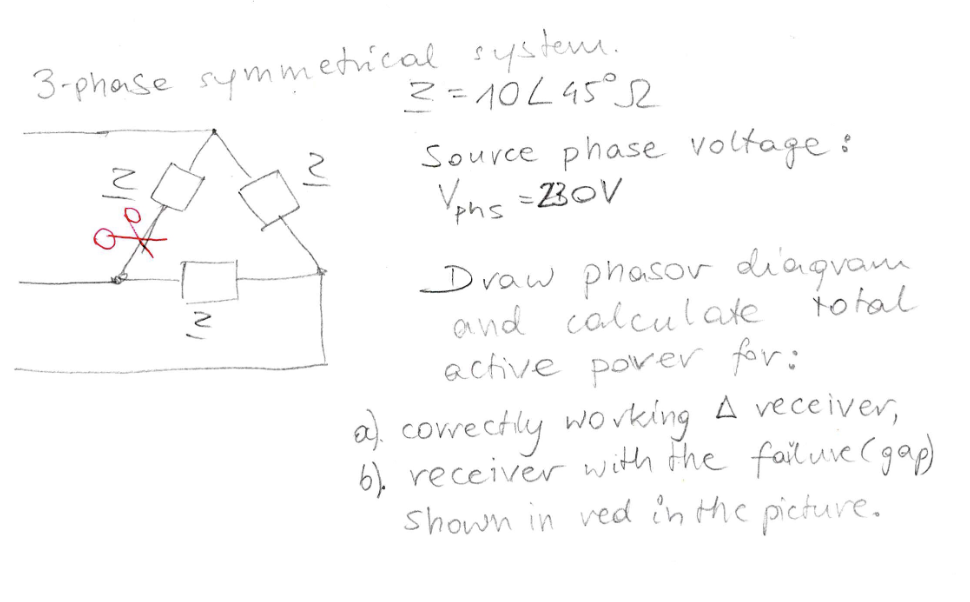 3-phase symmetrical system.
Z = 10∠45° Ω
Source phase voltage:
Vphs = 230V
Z
Z
Z
Draw phasor diagram
and calculate total
active power for:
a). correctly working Δ receiver,
b). receiver with the failure (gap)
shown in red in the picture.